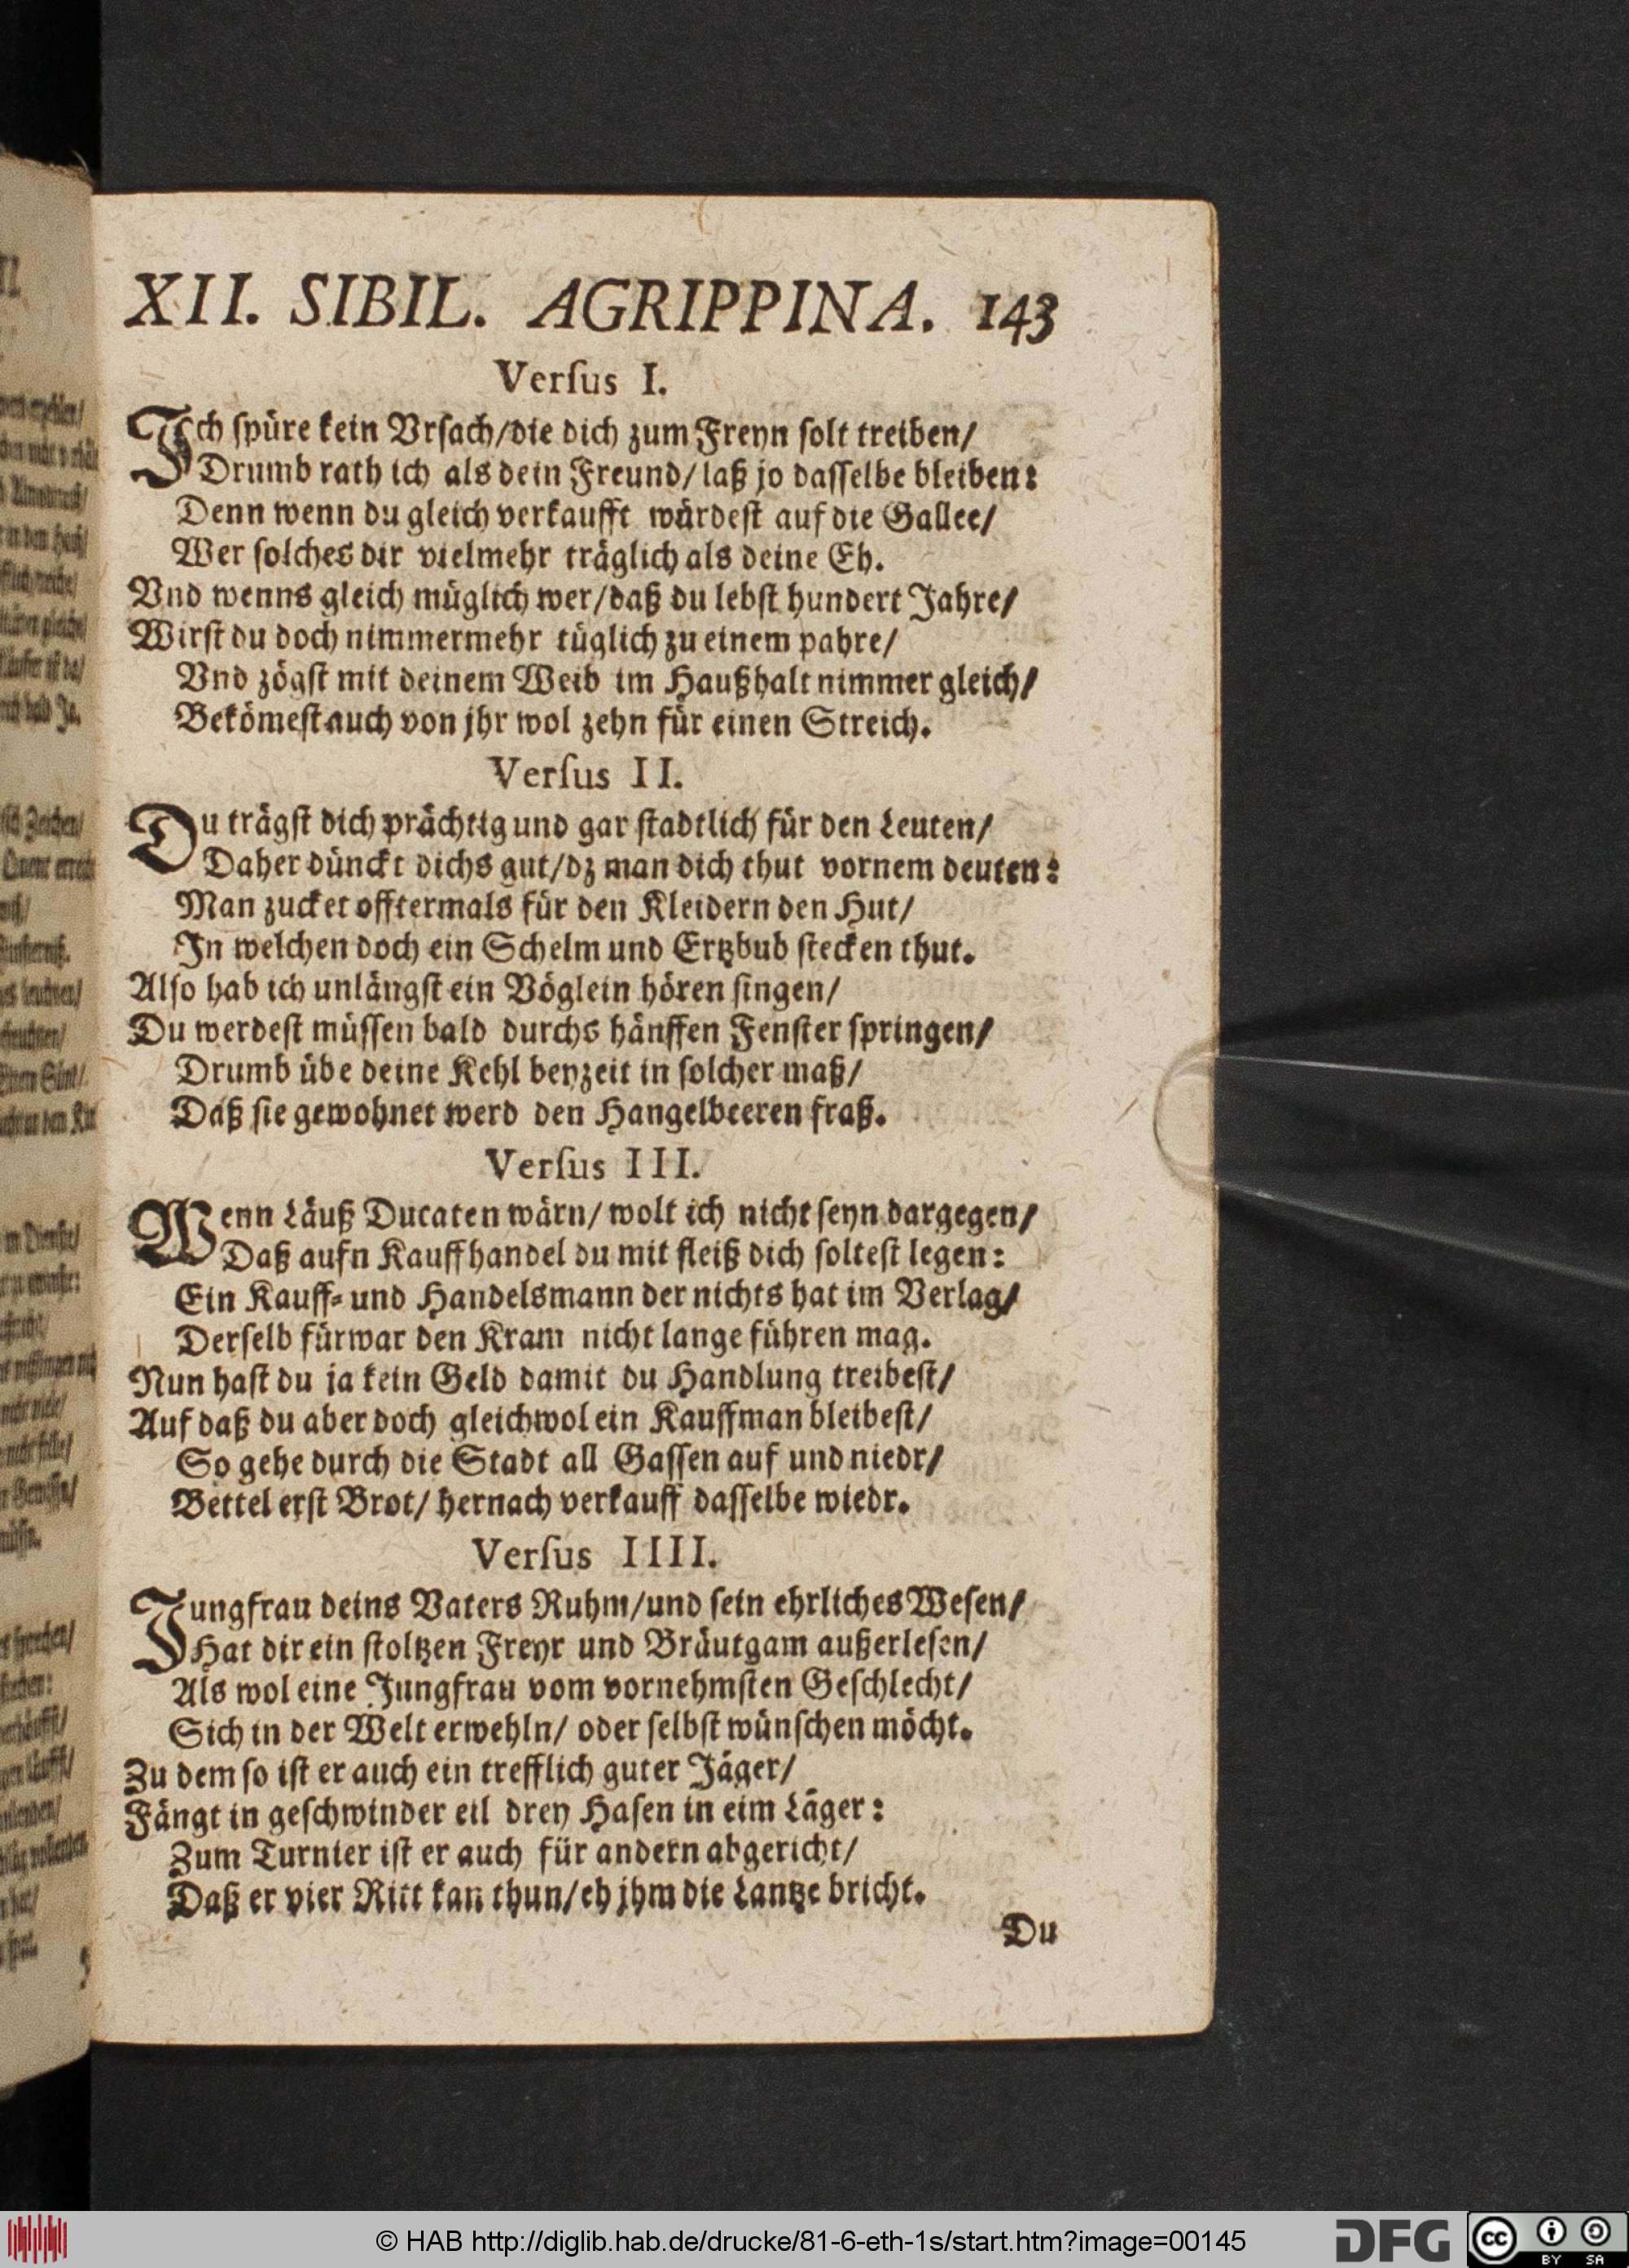 XII. SIBIL. AGRIPPINA. 143
Verſus I.
Ich ſpüre kein Vrſach/die dich zum Freyn ſolt treiben/
Drumb rath ich als dein Freund/ laß jo daſſelbe bleiben:
Denn wenn du gleich verkaufft würdeſt auf die Gallee/
Wer ſolches dir vielmehr träglich als deine Eh.
Vnd wenns gleich müglich wer/daß du lebſt hundert Jahre/
Wirſt du doch nimmermehr tüglich zu einem pahre/
Vnd zögſt mit deinem Weib im Haußhalt nimmer gleich/
Bekömeſt auch von jhr wol zehn für einen Streich.
Verſus II.
Du trägſt dich prächtig und gar ſtadtlich für den Leuten/
Daher dünckt dichs gut/dz man dich thut vornem deuten:
Man zucket offtermals für den Kleidern den Hut/
In welchen doch ein Schelm und Ertzbub ſtecken thut.
Alſo hab ich unlängſt ein Vöglein hören ſingen/
Du werdeſt müſſen bald durchs hänffen Fenſter ſpringen/
Drumb übe deine Kehl beyzeit in ſolcher maß/
Daß ſie gewohnet werd den Hangelbeeren fraß.
Verſus III.
Wenn Läuß Ducaten wärn/ wolt ich nicht ſeyn dargegen/
Daß aufn Kauffhandel du mit fleiß dich ſolteſt legen:
Ein Kauff- und Handelsmann der nichts hat im Verlag/
Derſelb fürwar den Kram nicht lange führen mag.
Nun haſt du ja kein Geld damit du Handlung treibeſt/
Auf daß du aber doch gleichwol ein Kauffman bleibeſt/
So gehe durch die Stadt all Gaſſen auf und niedr/
Bettel erſt Brot/ hernach verkauff daſſelbe wiedr.
Verſus IIII.
Jungfrau deins Vaters Ruhm/und ſein ehrliches Weſen/
Hat dir ein ſtoltzen Freyr und Bräutgam außerleſen/
Als wol eine Jungfrau vom vornehmſten Geſchlecht/
Sich in der Welt erwehln/ oder ſelbſt wünſchen möcht.
Zu dem ſo iſt er auch ein trefflich guter Jäger/
Fängt in geſchwinder eil drey Haſen in eim Läger:
Zum Turnier iſt er auch für andern abgericht/
Daß er vier Ritt kan thun/eh jhm die Lantze bricht.
Du
© HAB http://diglib.hab.de/drucke/81-6-eth-1s/start.htm?image=00145
DFG
cc
BY SA